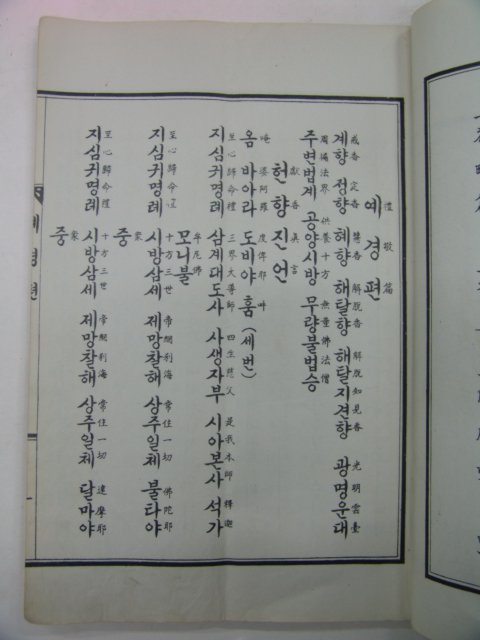 禮敬篇
예경편
戒香 定香 慧香 解脫香 解脫知見香 光明雲臺
계향 정향 혜향 해탈향 해탈지견향 광명운대
周徧法界 供養十方 無量佛法僧
주변법계 공양시방 무량불법승
獻香眞言
헌향진언
唵 婆阿羅 度俾耶 吽
옴 바아라 도비야 훔 (세번)
至心歸命禮 三界大導師 四生慈父 是我本師 釋迦
지심귀명례 삼계대도사 사생자부 시아본사 석가
牟尼佛
모니불
至心歸命禮 十方三世 帝網刹海 常住一切 佛陀耶
지심귀명례 시방삼세 제망찰해 상주일체 불타야
衆
중
至心歸命禮 十方三世 帝網刹海 常住一切 達摩耶
지심귀명례 시방삼세 제망찰해 상주일체 달마야
衆
중
예경편
一